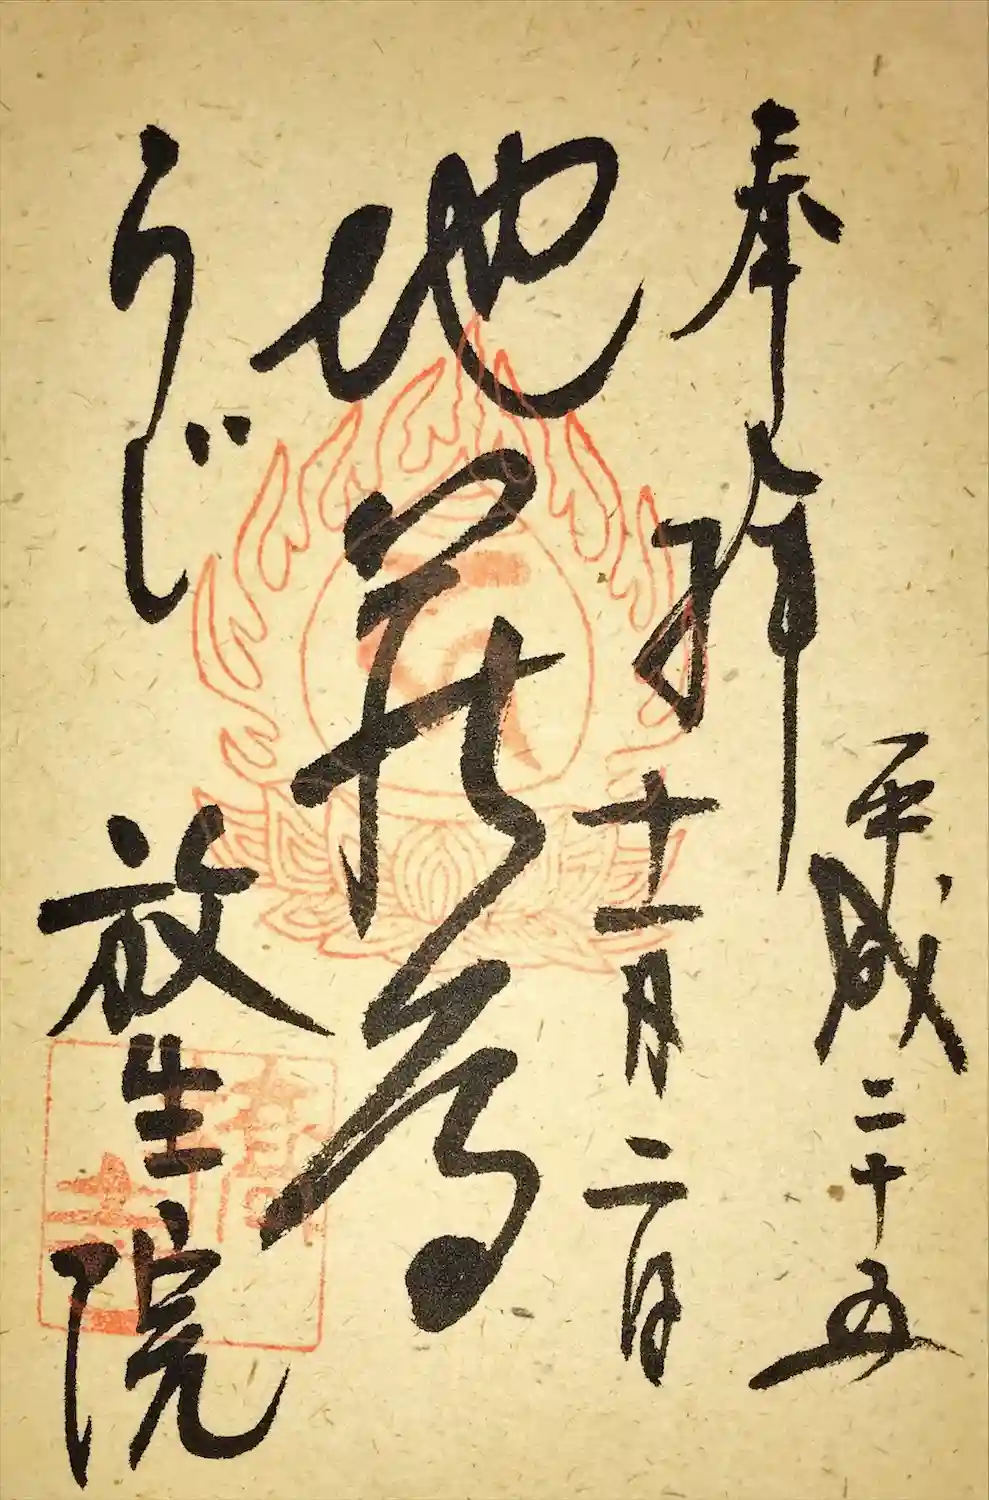 奉拝
平成二十五
十一月二日
地蔵尊
うじ
放生院
橋寺